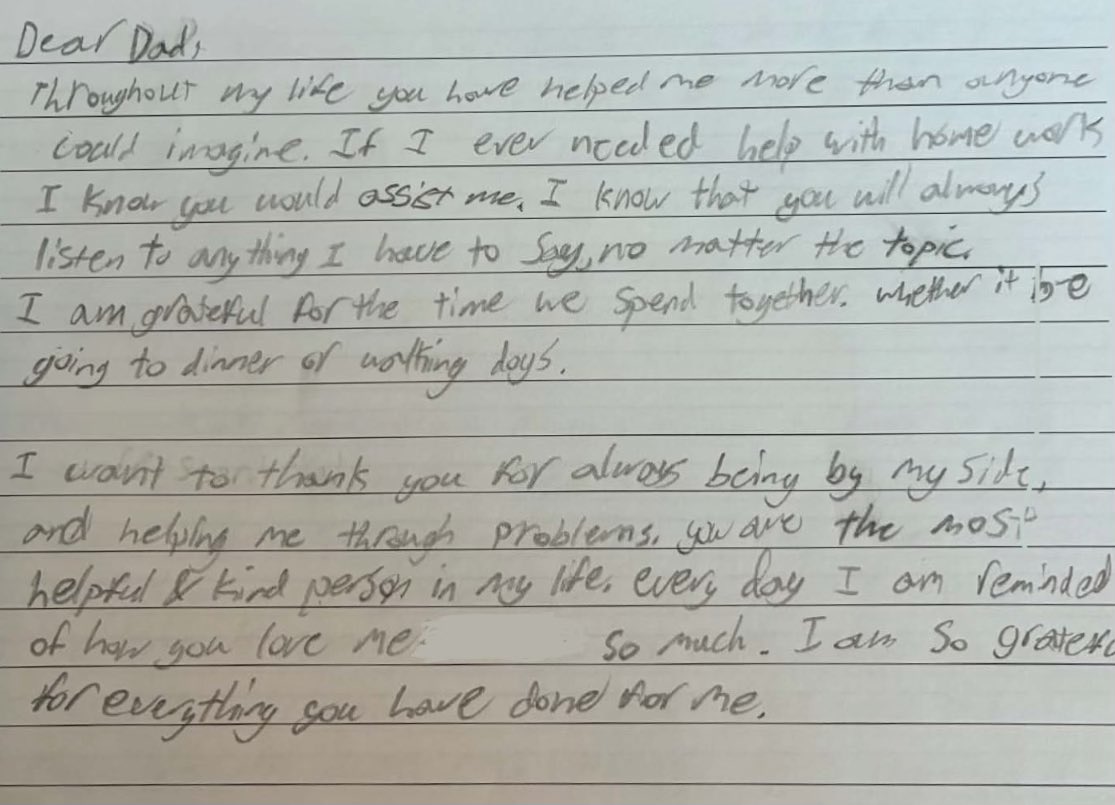 Dear Dad,
Throughout my life you have helped me more than anyone
could imagine. If I ever needed help with home work
I know you would assist me. I know that you will always
listen to anything I have to say, no matter the topic.
I am grateful for the time we spend together. whether it be
going to dinner or walking dogs.
I want to thank you for always being by my side,
and helping me through problems. you are the most
helpful & kind person in my life. every day I am reminded
of how you love me so much. I am so gratefu
for everything you have done for me.